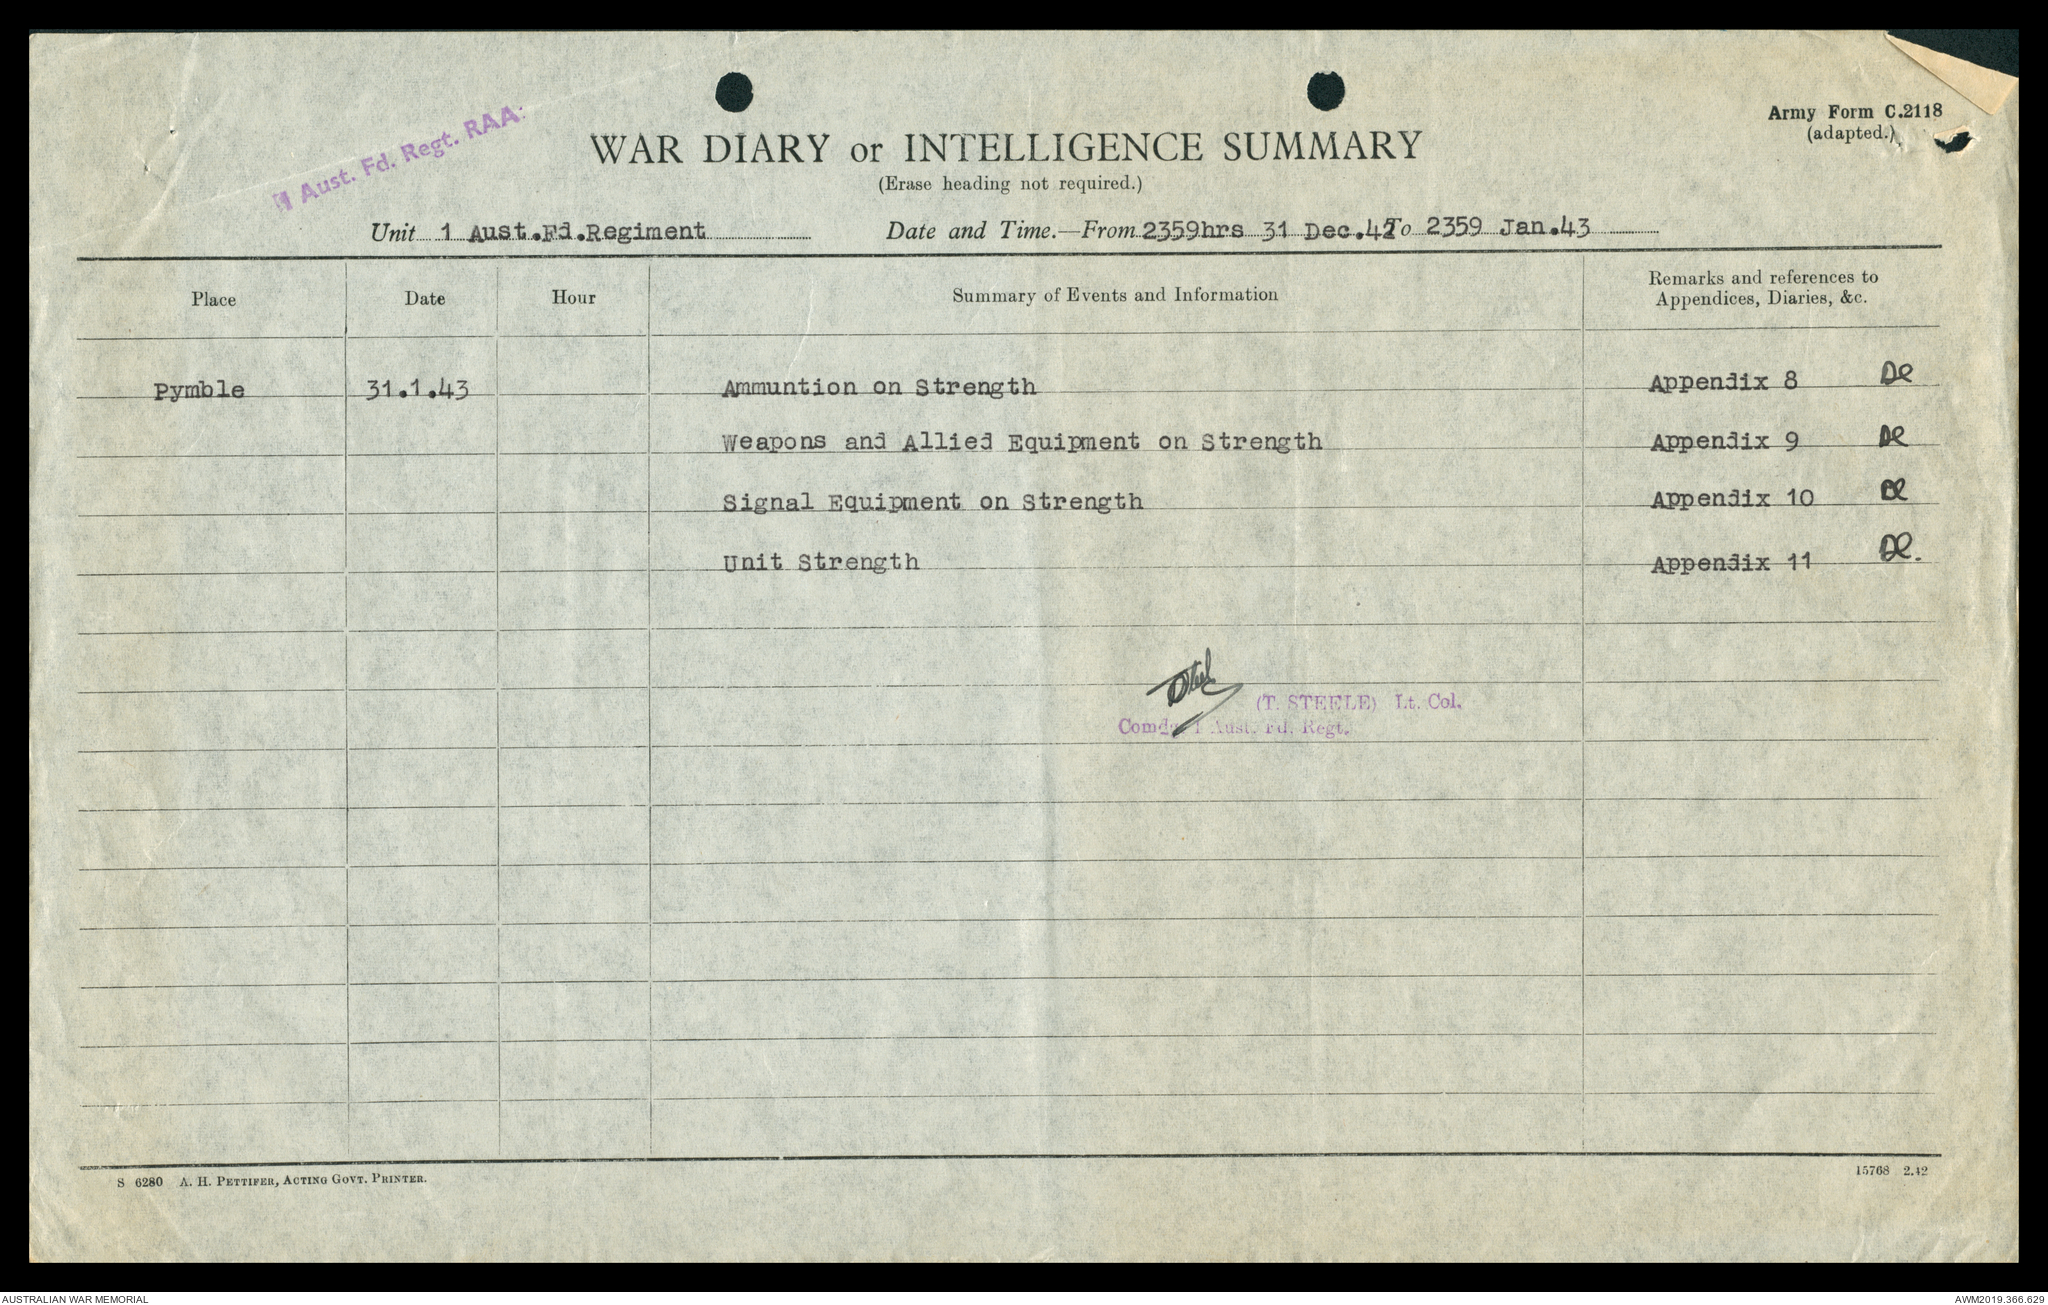 1 Aust. Fd. Regt. RAA.
Army Form C.2118
(adapted.)
WAR DIARY or INTELLIGENCE SUMMARY
(Erase heading not required.)
Unit 1 Aust.Fd.Regiment Date and Time.—From 2359hrs 31 Dec.42 To 2359 Jan.43
Place Date Hour Summary of Events and Information Remarks and references to
Appendices, Diaries, &c.
Pymble 31.1.43 Ammuntion on Strength Appendix 8
Weapons and Allied Equipment on Strength Appendix 9
Signal Equipment on Strength Appendix 10
Unit Strength Appendix 11
(T. STEELE) Lt. Col.
Comdg 1 Aust. Fd. Regt.
S 6280 A. H. PETTIFER, ACTING GOVT. PRINTER.
15768 2.42
AUSTRALIAN WAR MEMORIAL AWM2019.366.629